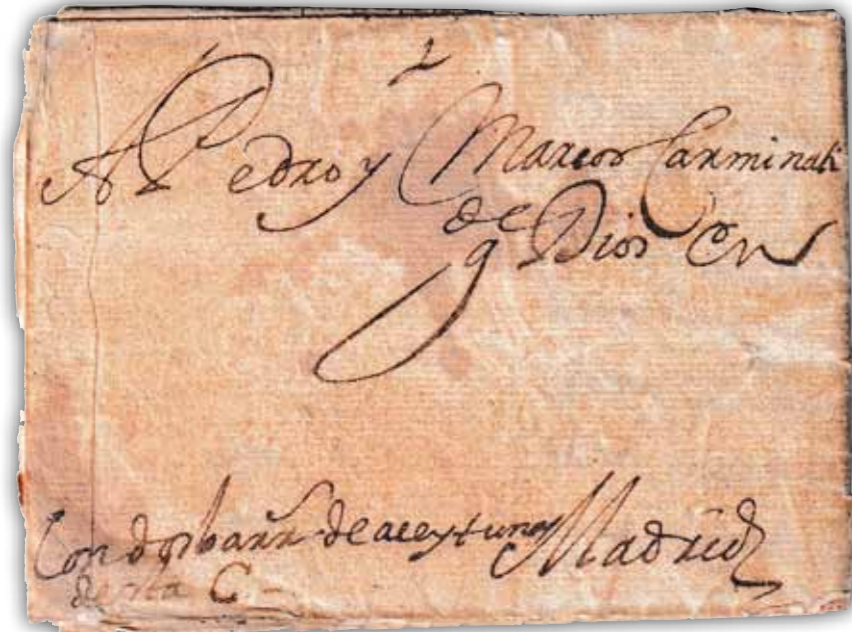 A Pedro y Marcos Carminati
g de Dios en
Con dos barr de aceytunas Madrid
C